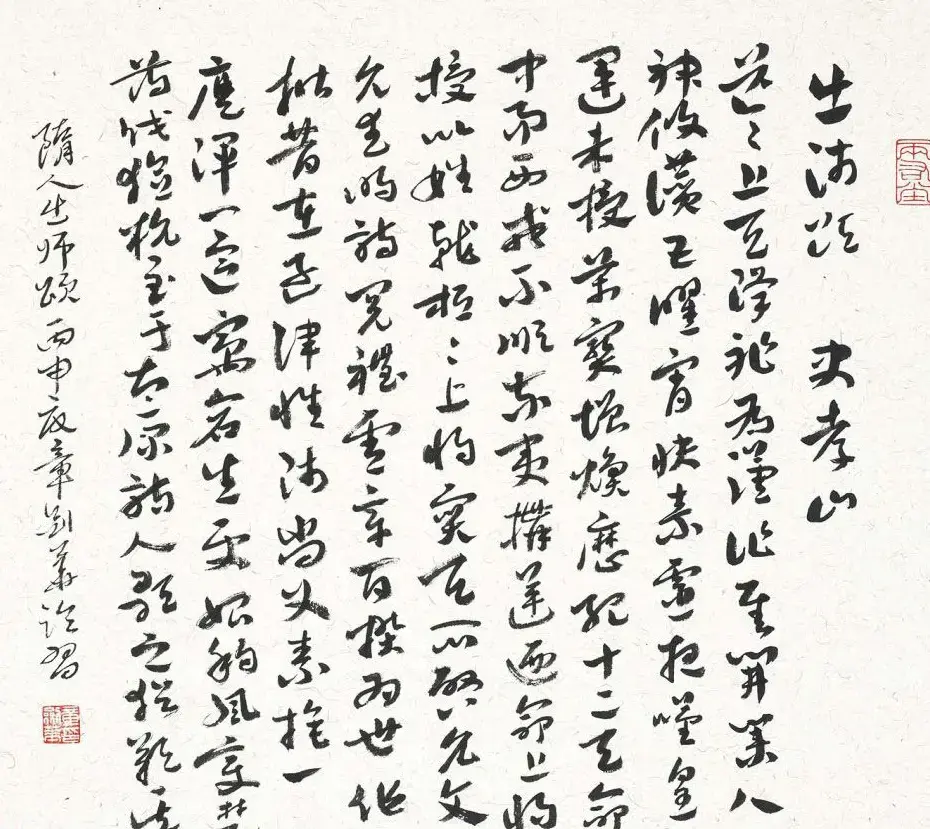 出師頌 史孝山
茫〻上天降祚為漢作基開業人
神攸讚五曜宵映素靈夜歎皇
運未授萬寶增煥歷紀十二天命
中易西戎不順東夷構逆乃命上將
授以雄戟桓〻上將實天所啟允文
允武明詩閱禮憲章百揆為世作
楷昔在孟津惟師尚父素旄一
麾渾一區宇蒼生更始朔風變楚
薄伐獫狁至于太原詩人歌之猶歎其
隋人出师颂丙申 臨習